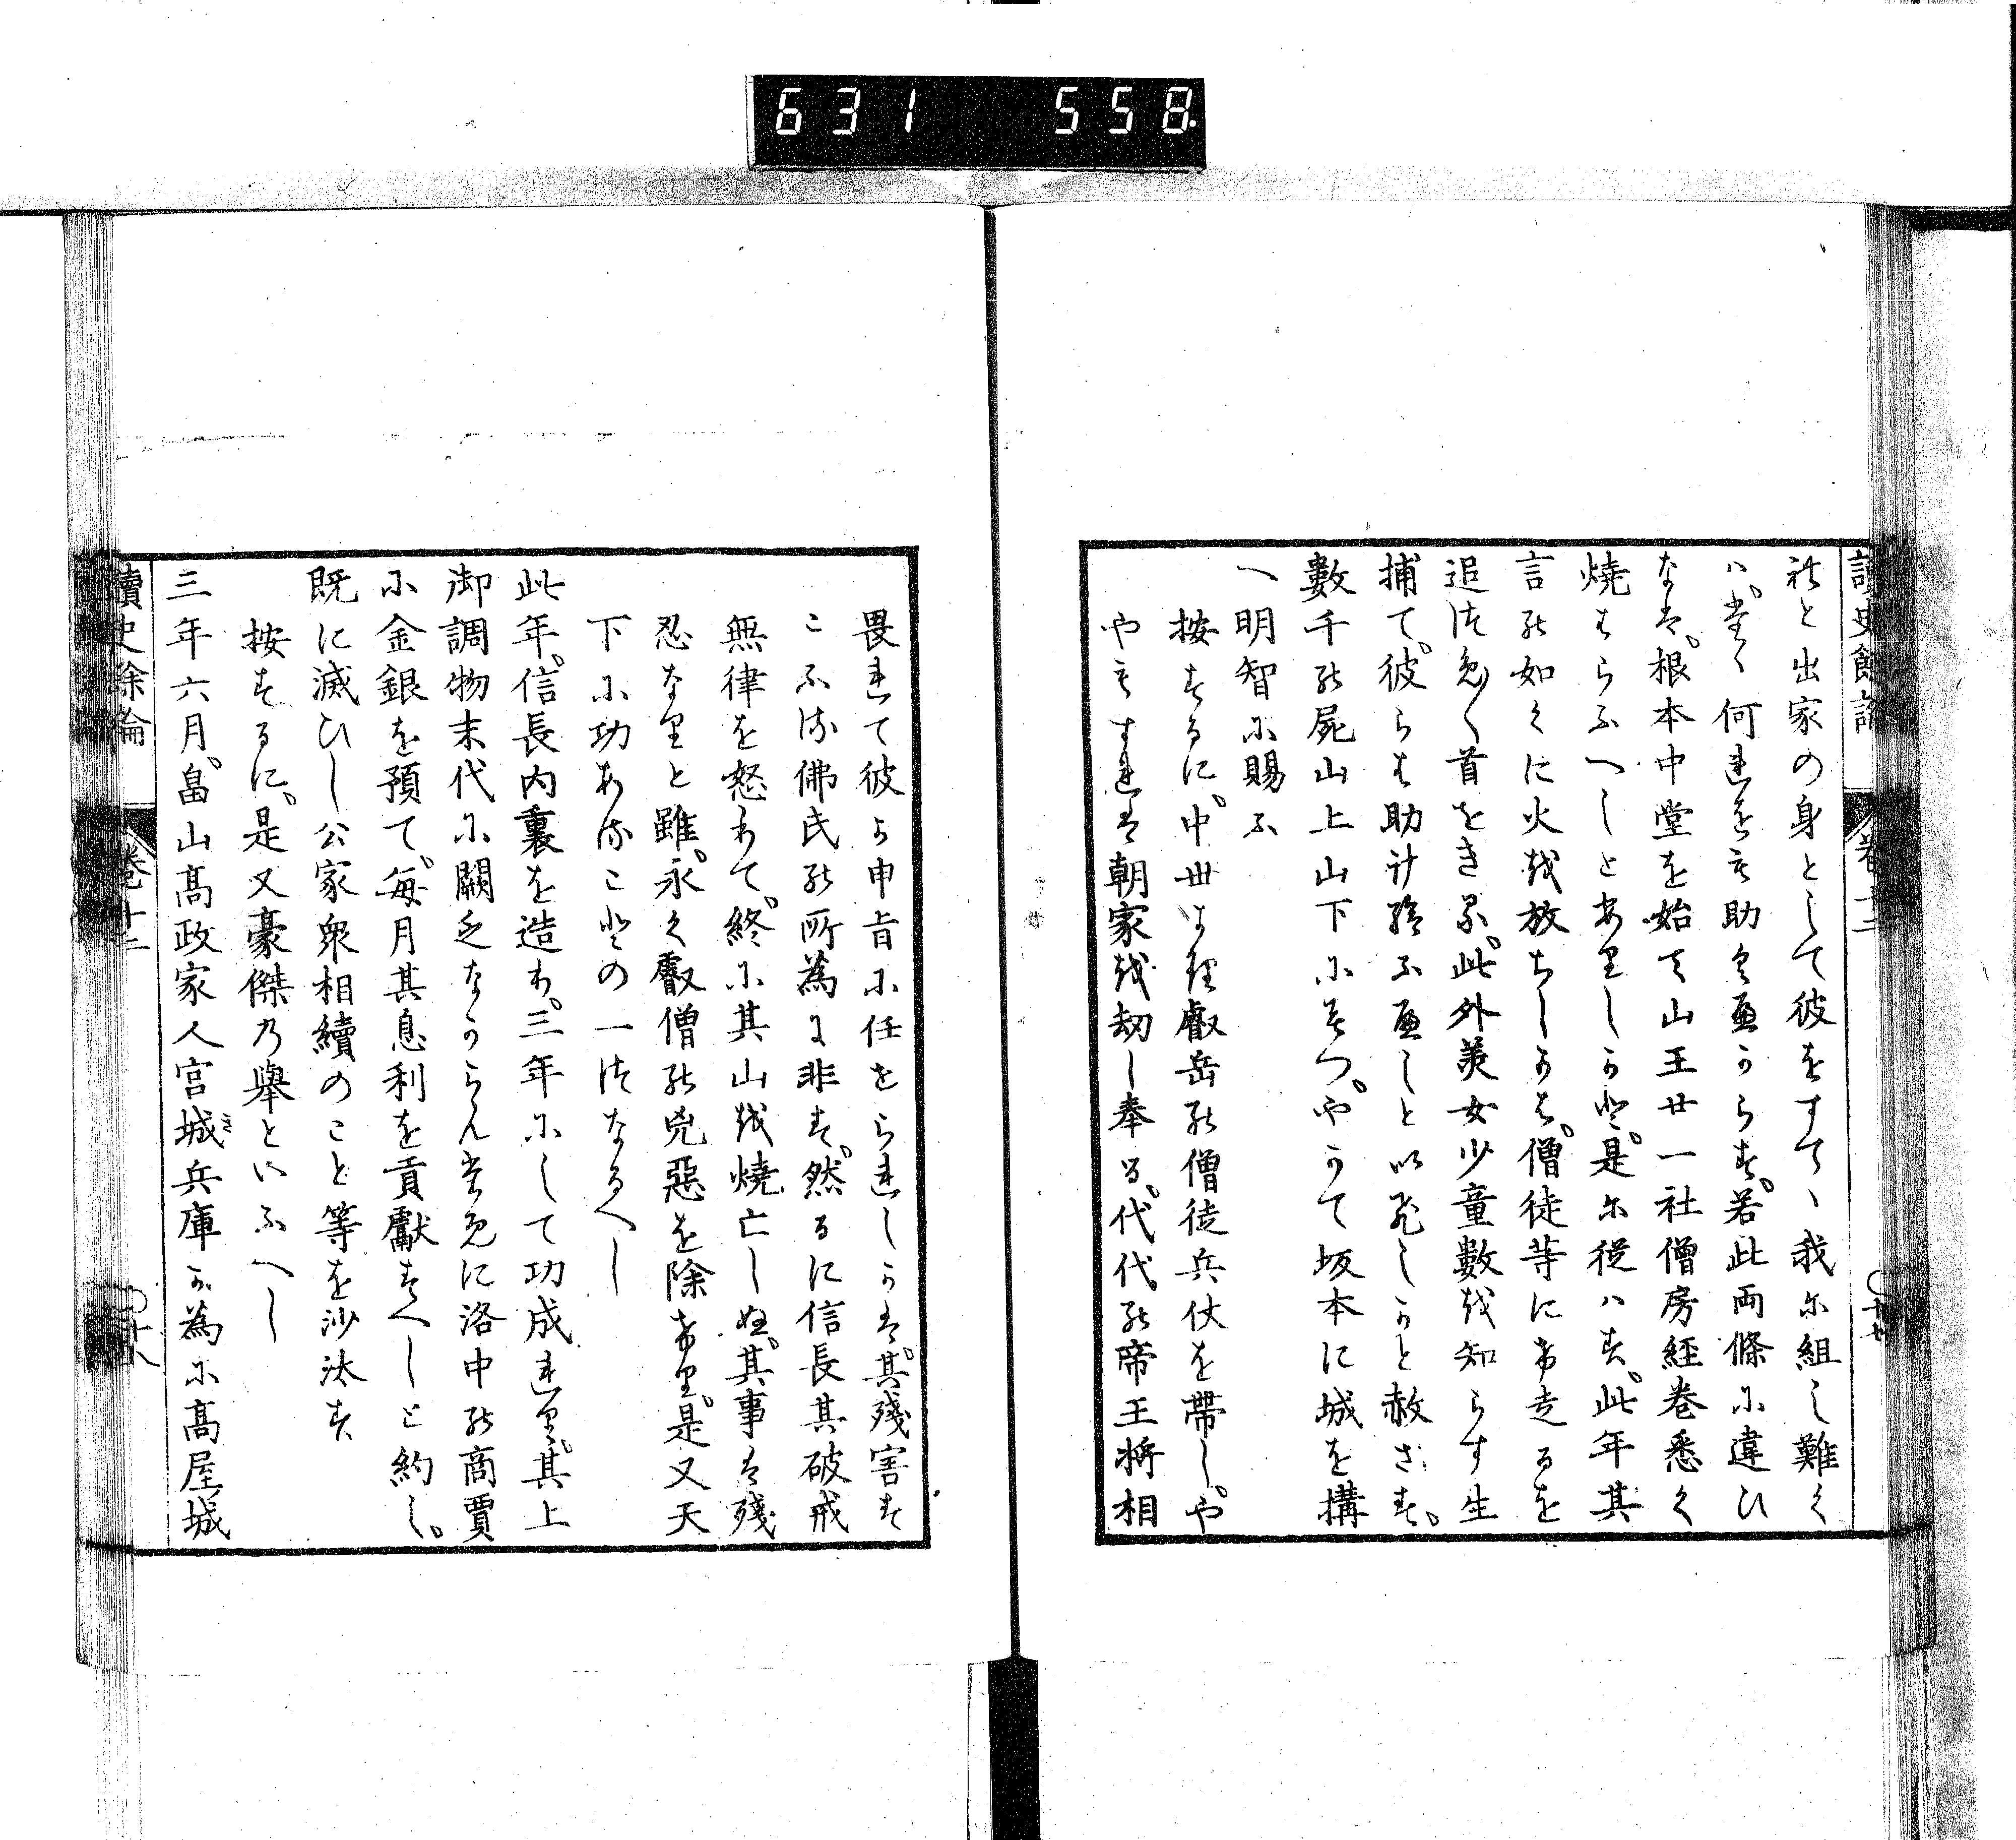 631 558.
讀史餘論 卷十二 ○十七
れと出家の身として彼をすてゝ我に組し難く
ハ堂く何れをも助くへからす若此両條に違ひ
なは根本中堂を始て山王廿一社僧房経巻悉く
燒はらふへしとありしかと是に從ハす此年其
言の如くに火を放ちしかは僧徒等にけ走るを
追つめ〱首をきる此外美女少童數を知らす生
捕て彼らは助け給ふへしと以ひしかと赦さす
數千の屍山上山下にみつやかて坂本に城を搆
へ明智に賜ふ
按するに中世より叡岳の僧徒兵仗を帶しや
やもすれは朝家を劫し奉る代代の帝王將相
畏れて彼か申旨に任せられしかは其殘害す
こふる佛氏の所為に非す然るに信長其破戒
無律を怒りて終に其山を燒亡しぬ其事は殘
忍なりと雖永く叡僧の兇惡を除けり是又天
下に功ある事の一つなるへし
此年信長内裏を造り三年にして功成れり其上
御調物末代に闕乏なからんために洛中の商賈
に金銀を預て毎月其息利を貢獻すへしと約し
既に滅ひし公家衆相續のこと等を沙汰す
按するに是又豪傑の擧といふへし
三年六月畠山高政家人宮城兵庫か為に高屋城
讀史餘論 卷十二 ○十八